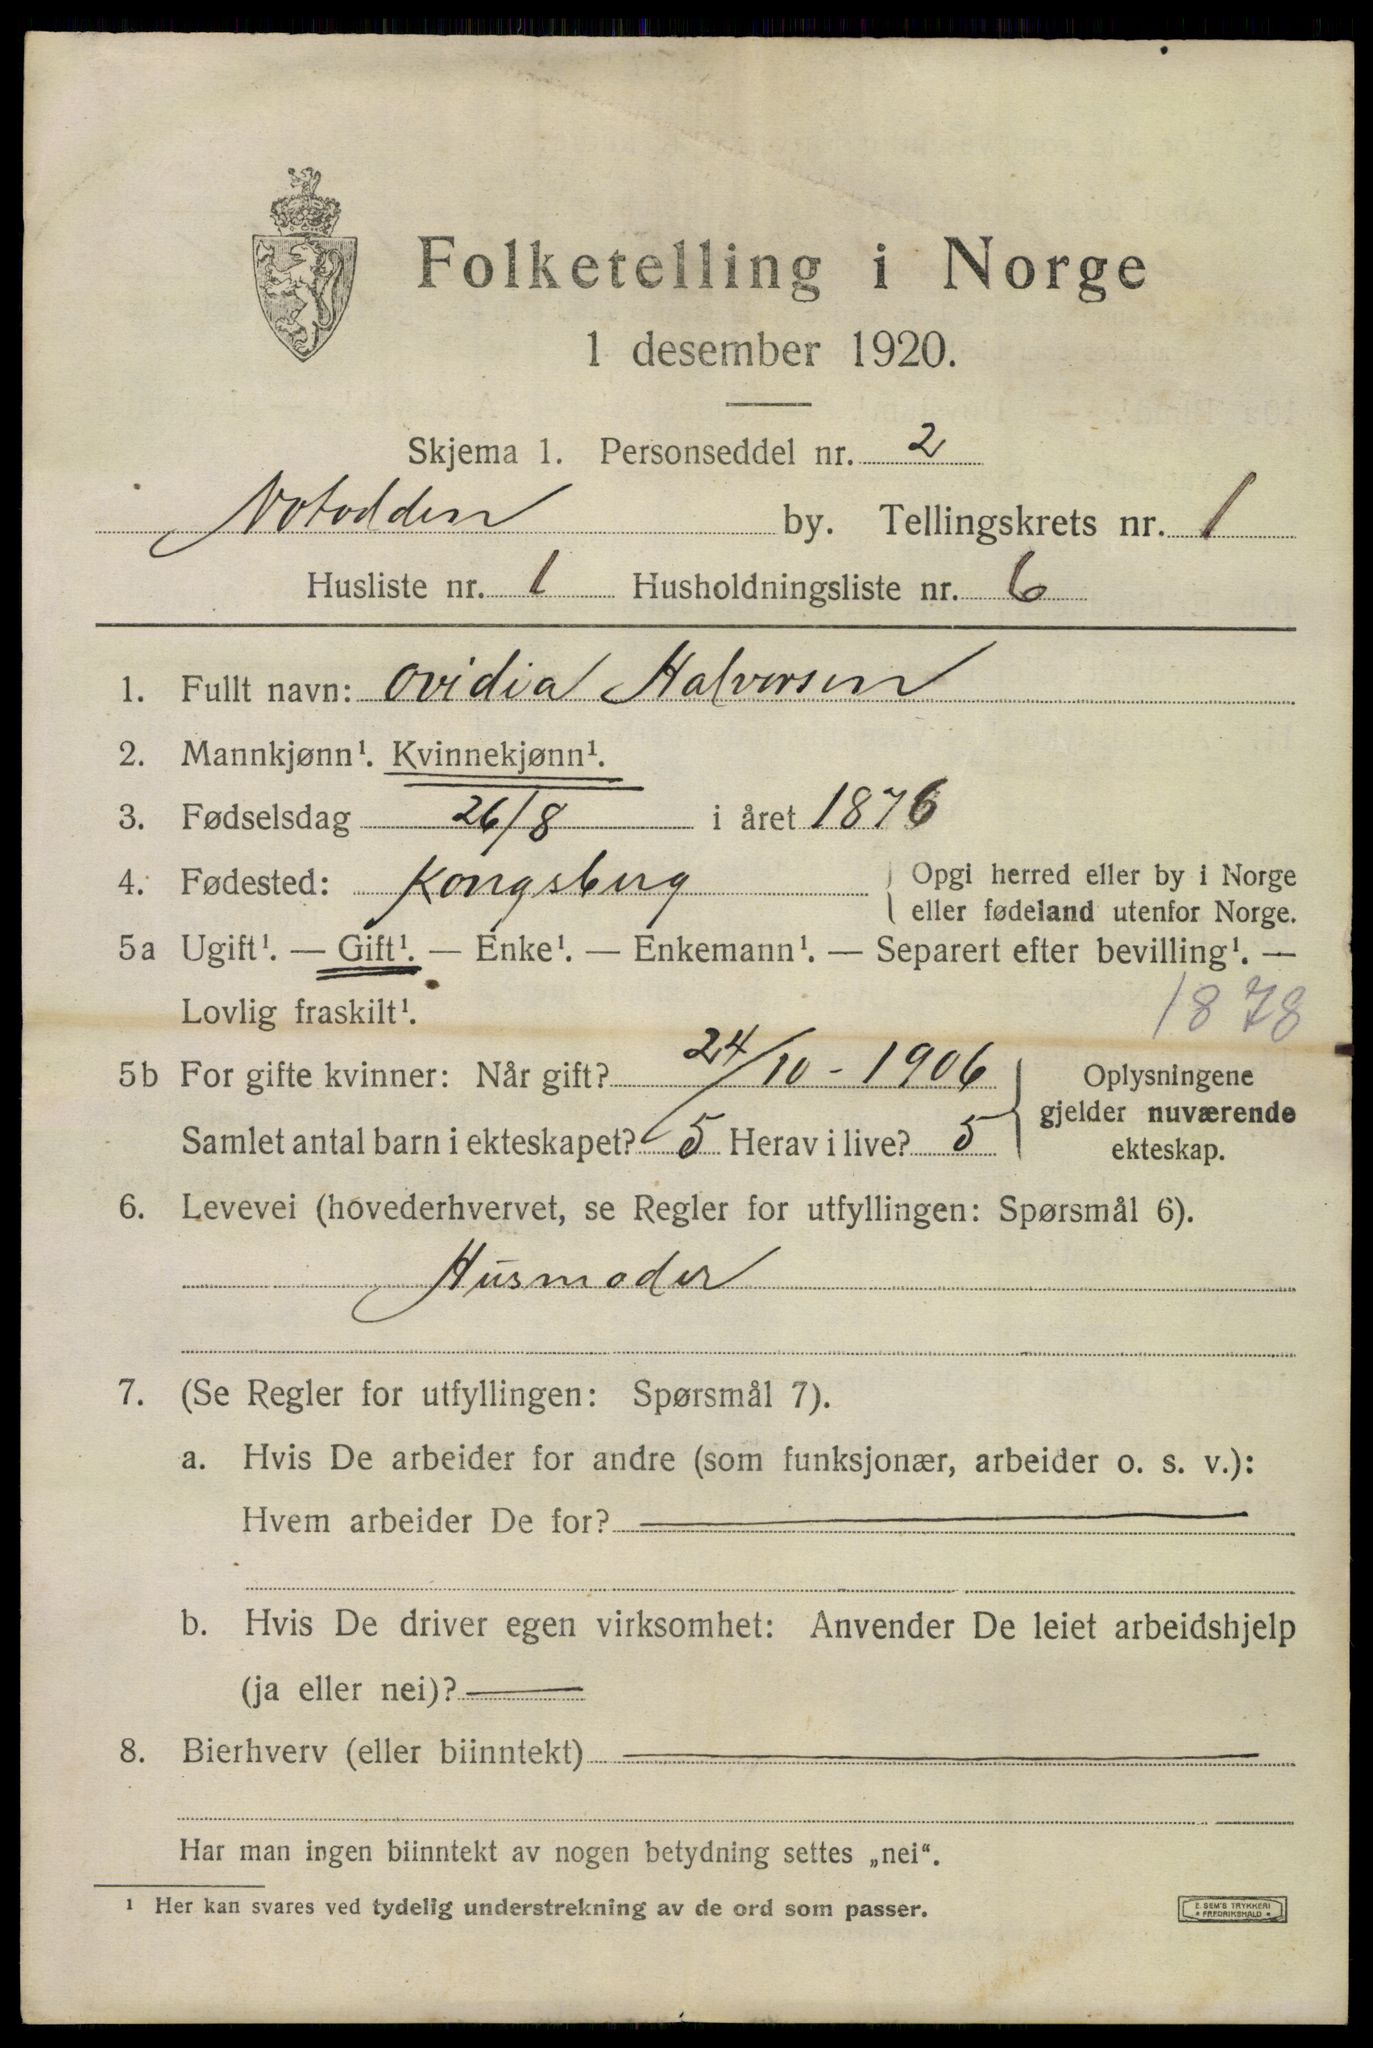 Folketelling i Norge
1 desember 1920.
Skjema 1. Personseddel nr. 2
Notodden by. Tellingskrets nr. 1
Husliste nr. 1 Husholdningsliste nr. 6
1. Fullt navn: Ovidia Halvorsen
2. Mannkjønn¹. Kvinnekjønn¹.
3. Fødselsdag 26/8 i året 1876
4. Fødested: Kongsberg Opgi herred eller by i Norge
eller fødeland utenfor Norge.
5a Ugift¹. — Gift¹. — Enke¹. — Enkemann¹. — Separert efter bevilling¹. —
Lovlig fraskilt¹. 1878
5b For gifte kvinner: Når gift? 24/10 - 1906
Samlet antal barn i ekteskapet? 5 Herav i live? 5
Oplysningene
gjelder nuværende
ekteskap.
6. Levevei (hovederhvervet, se Regler for utfyllingen: Spørsmål 6).
Husmoder
7. (Se Regler for utfyllingen: Spørsmål 7).
a. Hvis De arbeider for andre (som funksjonær, arbeider o. s. v.):
Hvem arbeider De for? —
b. Hvis De driver egen virksomhet: Anvender De leiet arbeidshjelp
(ja eller nei)? —
8. Bierhverv (eller biinntekt) —
Har man ingen biinntekt av nogen betydning settes „nei“.
¹ Her kan svares ved tydelig understrekning av de ord som passer.
E. SEM'S TRYKKERI
* FREDRIKSHALD *